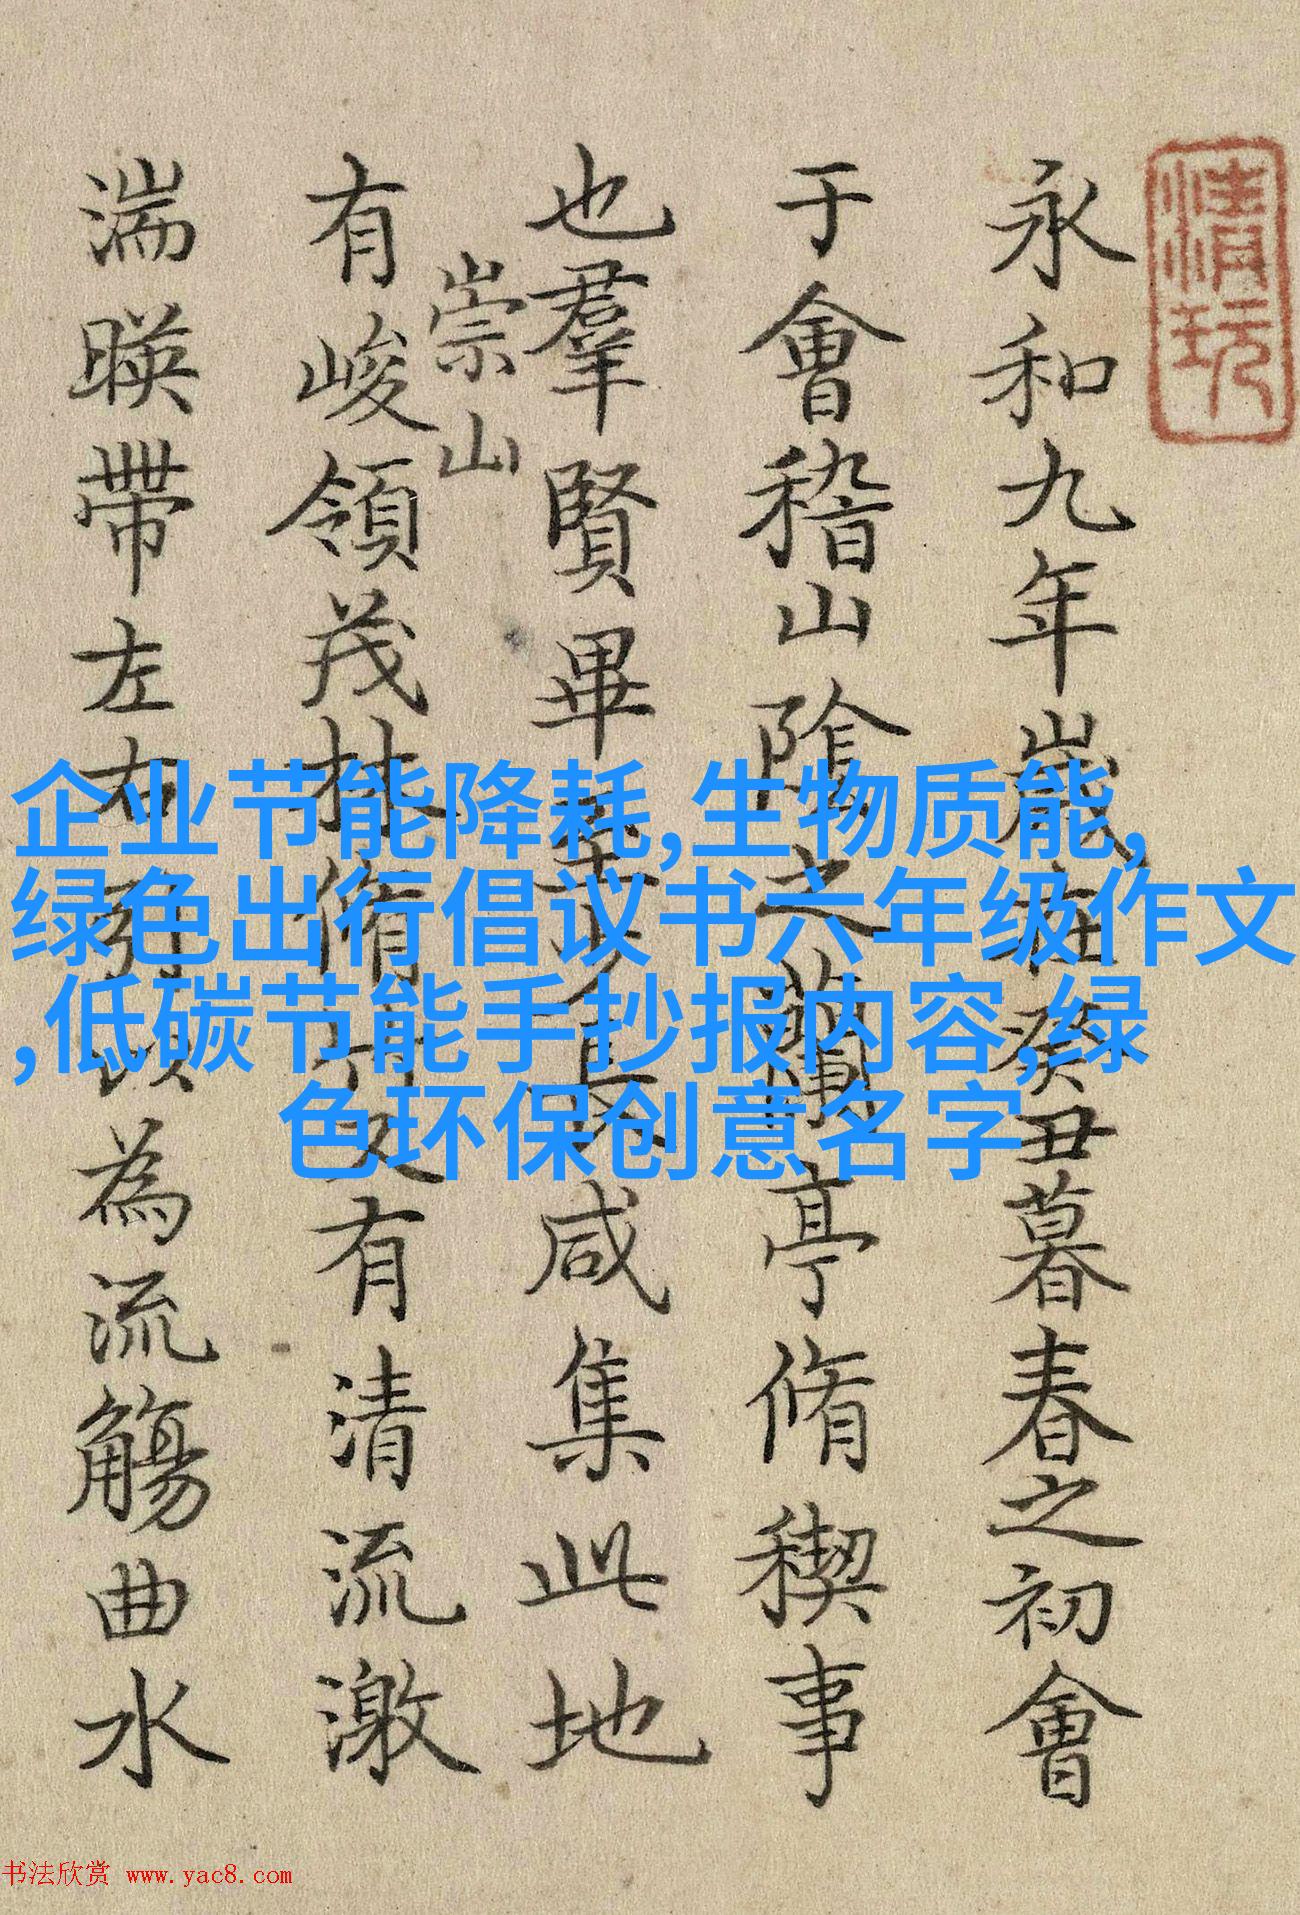 清玩
永和九年歲在癸丑暮春之初會
于會稽山陰之蘭亭脩稧事
也羣賢畢至少長咸集此地
崇山
有峻領茂林脩竹又有清流激
湍暎帶左右引以為流觴曲水
企业节能降耗,生物质能,
绿色出行倡议书六年级作文
,低碳节能手抄报内容,绿
色环保创意名字
书法欣赏 www.yac8.com